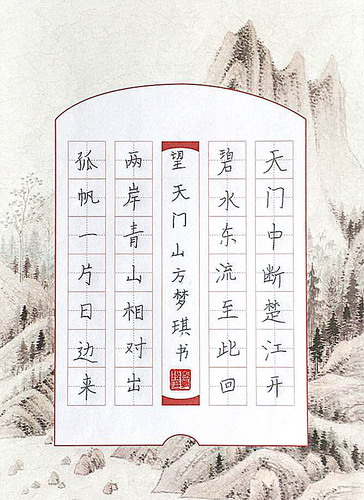 天门中断楚江开
碧水东流至此回
望天门山方梦琪书
两岸青山相对出
孤帆一片日边来